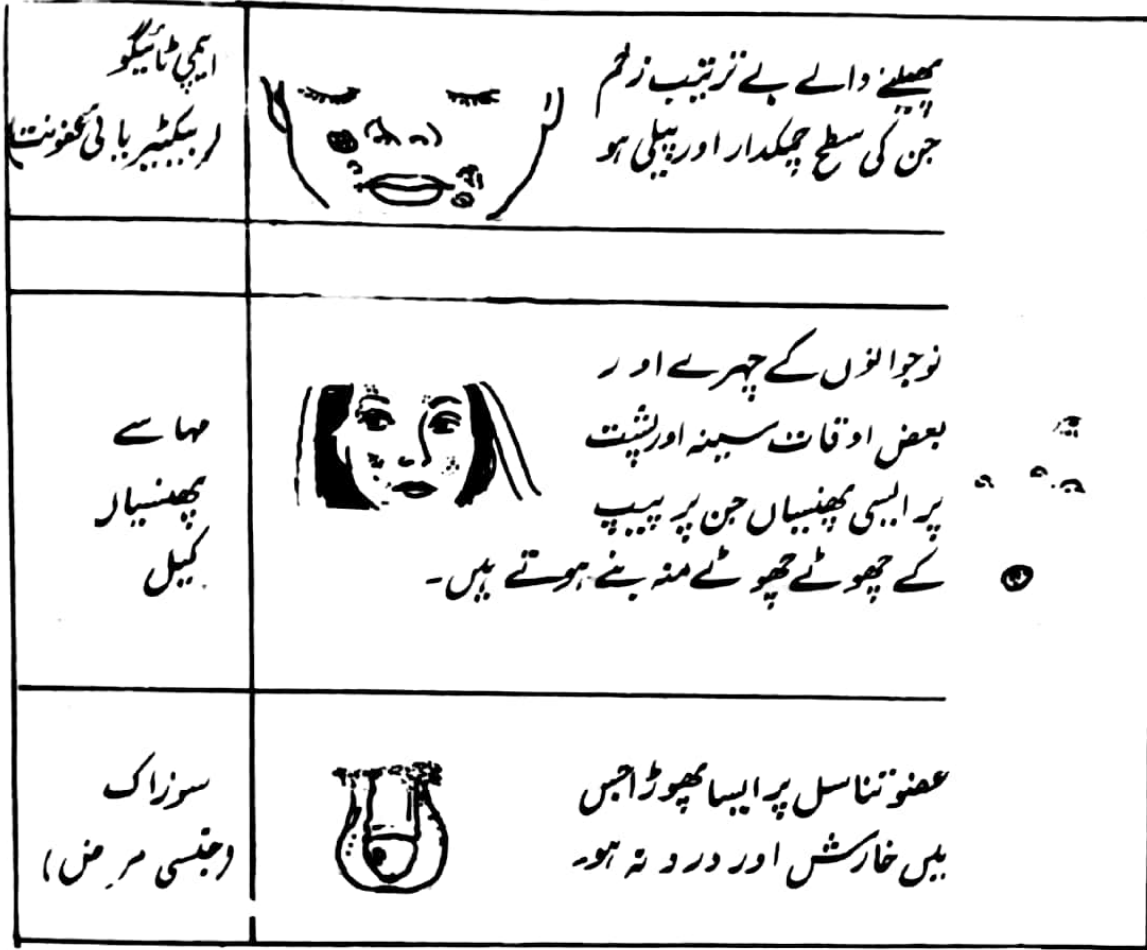 پھیلنے والے بے ترتیب زخم
جن کی سطح چمکدار اور پیلی ہو
ایمپی ٹائیگو
(بیکٹیریائی عفونت)
نوجوانوں کے چہرے اور
بعض اوقات سینہ اور پشت
پر ایسی پھنسیاں جن پر پیپ
کے چھوٹے چھوٹے منہ بنے ہوتے ہیں۔
مہاسے
پھنسیاں
کیل
عضو تناسل پر ایسا پھوڑا جس
میں خارش اور درد نہ ہو۔
سوزاک
(جنسی مرض)